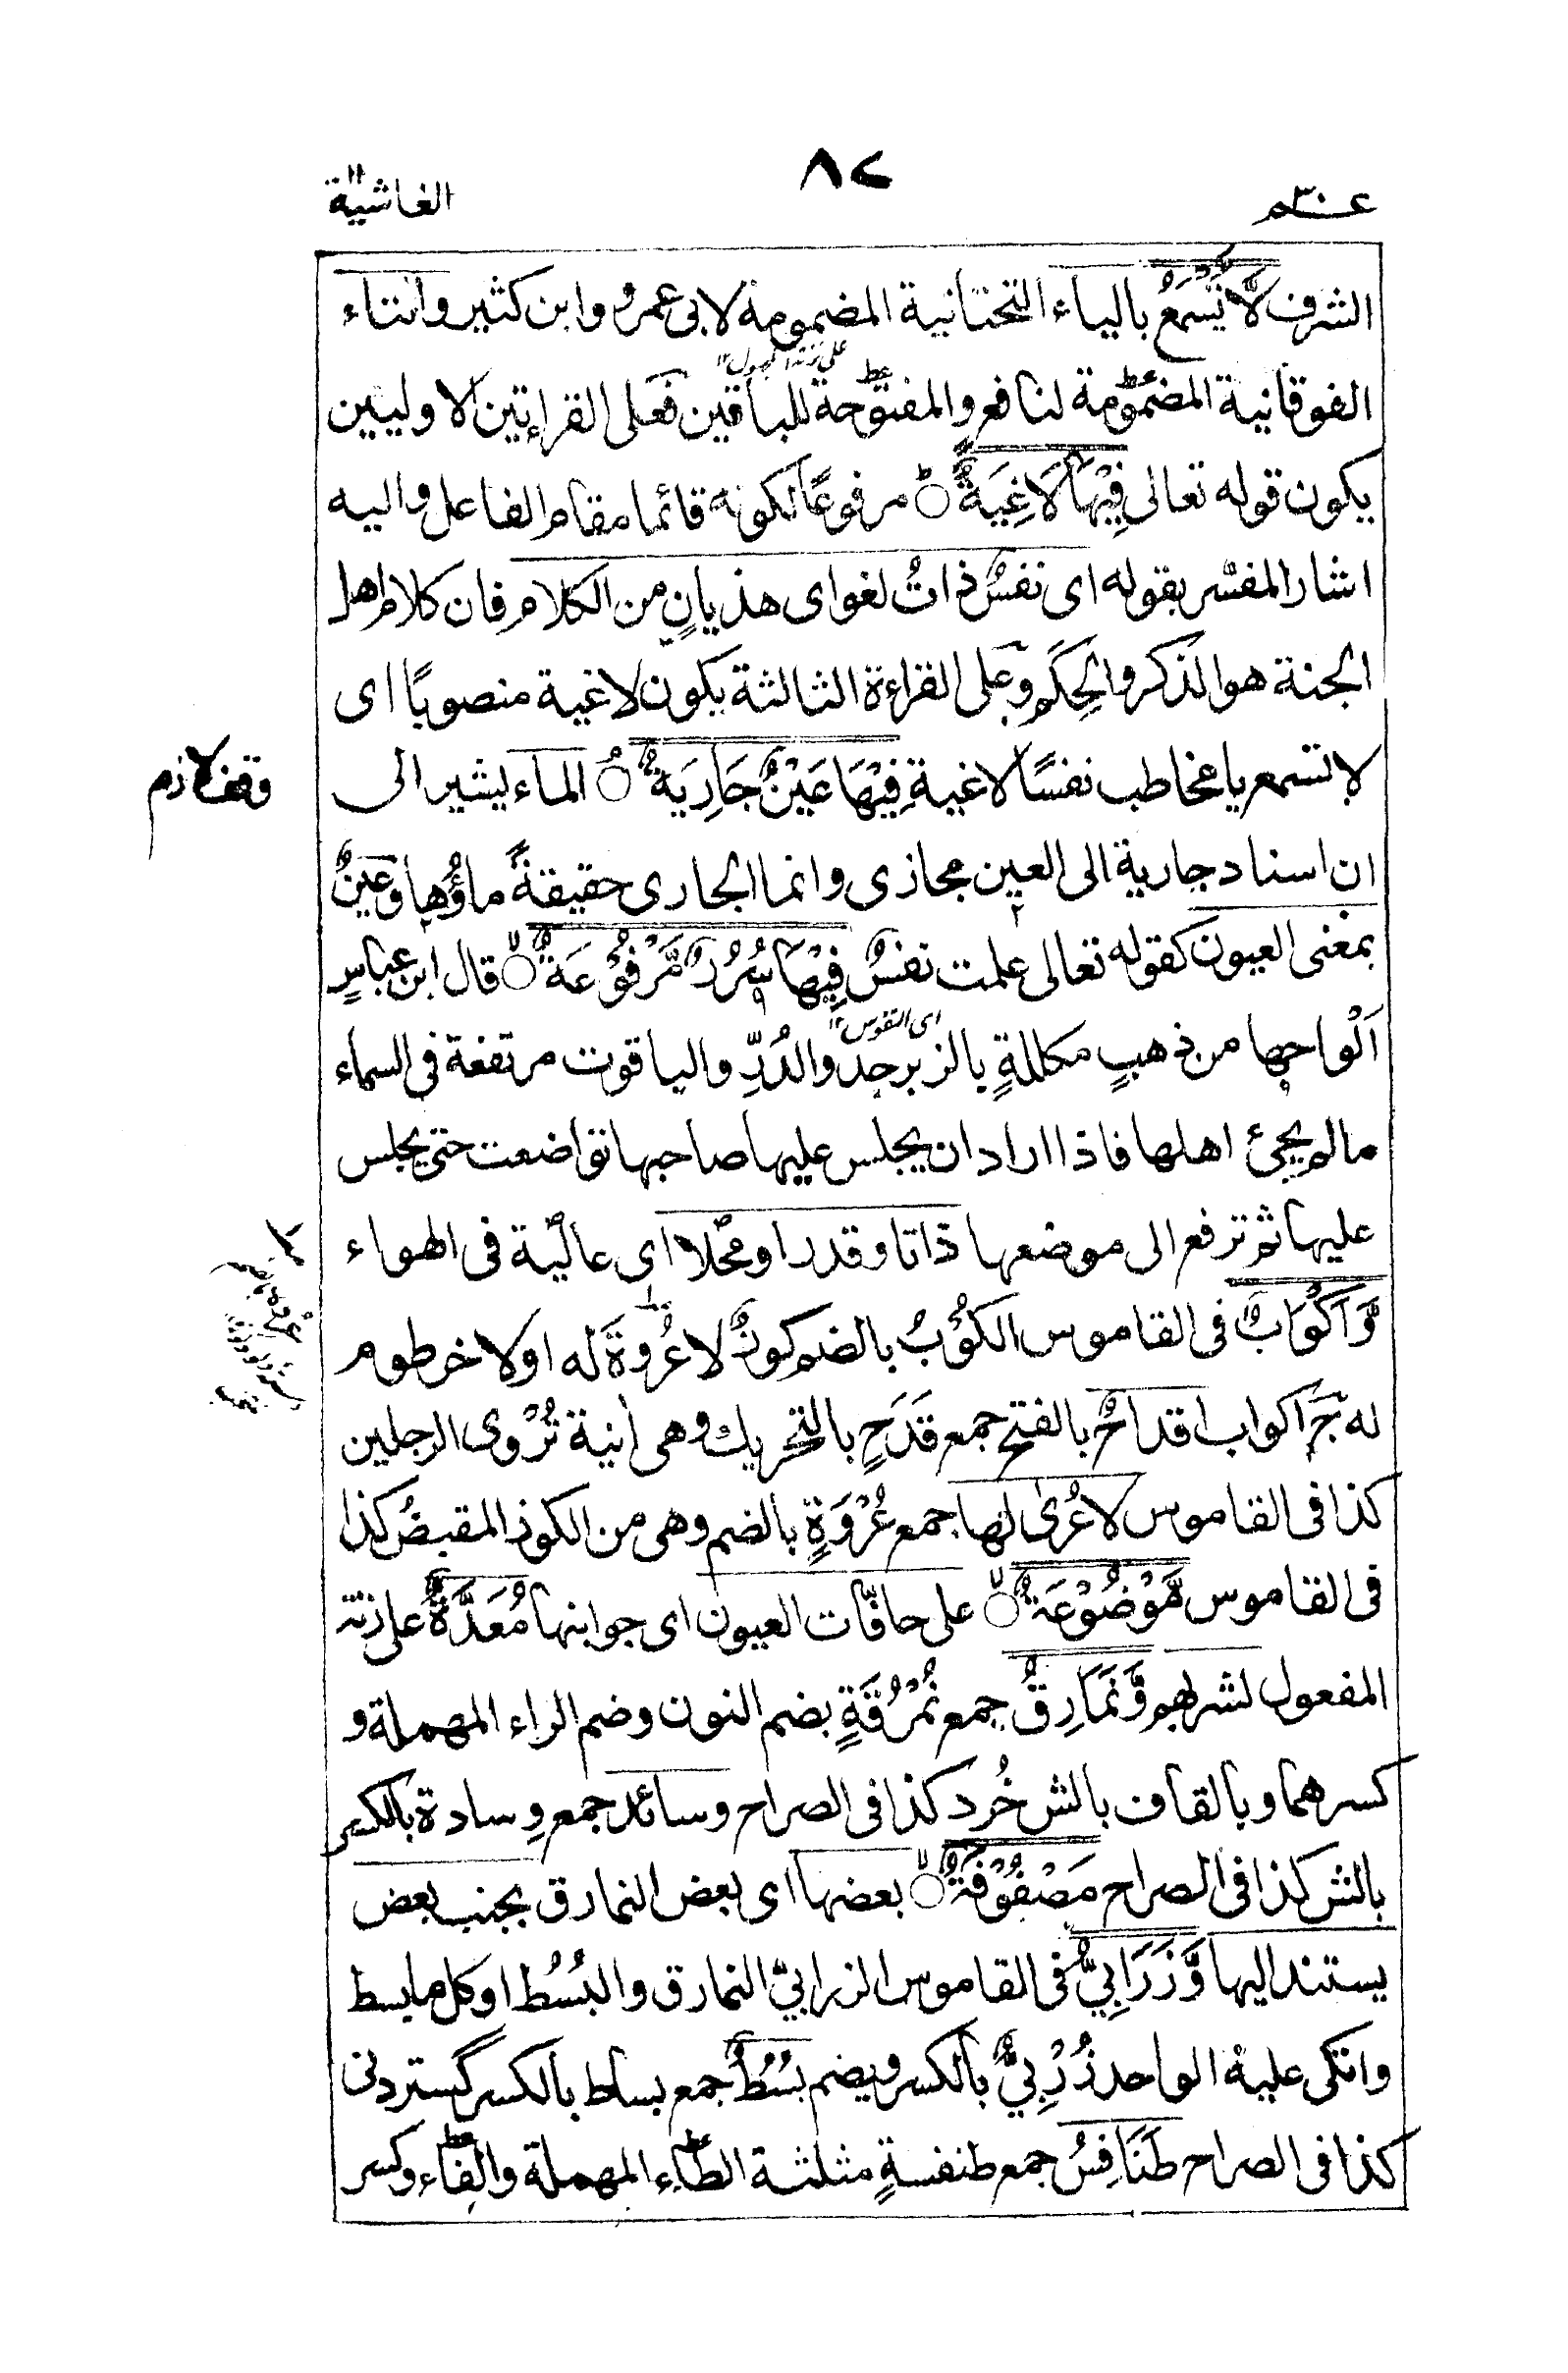 عـ٣٠ـم
٨٢
الغاشیة ۱۱
الشرف لَّا يُسْمَعُ بالياء التحتانية المضمومة لابى عمرو وابن كثير والتاء
الفوقانية المضمومة لنافع والمفتوحة للباقين فعلى القراءتين الاوليين
يكون قوله تعالى فِيْهَا لَاغِيَةٌ مرفوعًا لكونه قائما مقام الفاعل واليه
اشار المفسّر بقوله اى نفسٌ ذاتُ لغو اى هذيانٍ من الكلام فان كلام اهل
الجنة هو الذكر والحِكَم وعلى القراءة الثالثة يكون لاغية منصوبًا اى
لا تسمع يا مخاطب نفسًا لاغية فِيْهَا عَيْنٌ جَارِيَةٌ الماء يشير الى
وقف لازم
ان اسناد جارية الى العين مجازى وانما الجارى حقيقةً ماؤُها وعينٌ
بمعنى العيون كقوله تعالى علمت نفسٌ فِيْهَا سُرُرٌ مَّرْفُوْعَةٌ قال ابن عباسٍ
اى النفوس ۱۲
اَلْواحها من ذهبٍ مكللةٍ بالزبرجد والدُرِّ والياقوت مرتفعة فى السماء
مالم يجئ اهلها فاذا اراد ان يجلس عليها صاحبها تواضعت حتى يجلس
عليها ثم ترفع الى موضعها ذاتا وقدرا ومحلا اى عالية فى الهواء
وَّاَكْوَابٌ فى القاموس الكُوْبُ بالضم كوزٌ لا عُرْوَةَ له او لا خرطوم
له ج اكواب اقداحٌ بالفتح جمع قَدَحٍ بالتحريك وهى اٰنية تُرْوى الرجلين
كذا فى القاموس لا عُرىٰ لها جمع عُرْوَةٍ بالضم وهى من الكوز المقبضُ كذا
فى القاموس مَّوْضُوْعَةٌ على حافّات العيون اى جوانبها مُعَدَّةٌ على زنة
المفعول لشربهم وَّنَمَارِقُ جمع نُمْرُقَةٍ بضم النون وضم الراء المهملة و
كسرهما وبالقاف بالش خُرد كذا فى الصراح وسائد جمع وِسادة بالكسر
بالش كذا فى الصراح مَصْفُوْفَةٌ بعضها اى بعض النمارق بجنب بعض
يستند اليها وَّزَرَابِيُّ فى القاموس الزرابيّ النمارق والبُسُط او كل ما بسط
واتكى عليه الواحد زُرْبِيٌّ بالكسر ويضم بُسُطٌ جمع بساط بالكسر گستردنى
كذا فى الصراح طَنَافِسُ جمع طنفسةٍ مثلثة الطاء المهملة والفاء وكسر